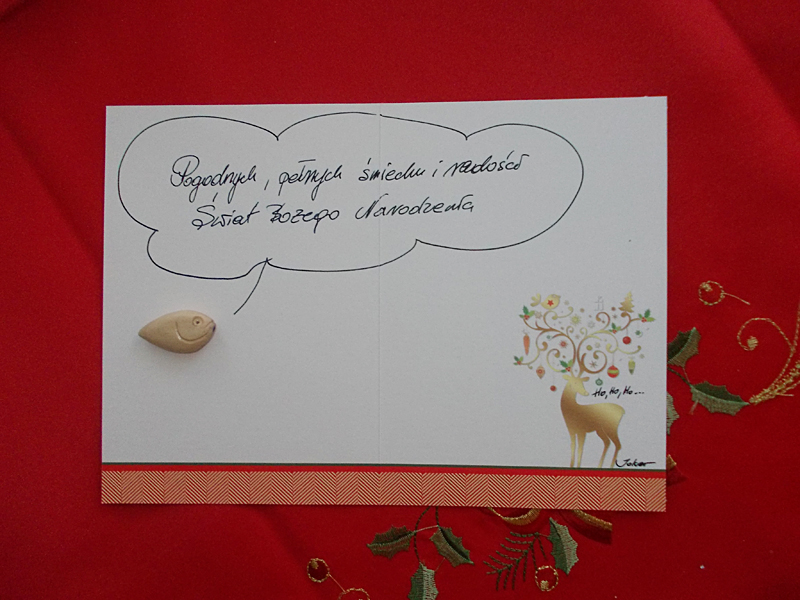 Pogodnych, pełnych śmiechu i radości
Świąt Bożego Narodzenia
Ho, Ho, Ho...